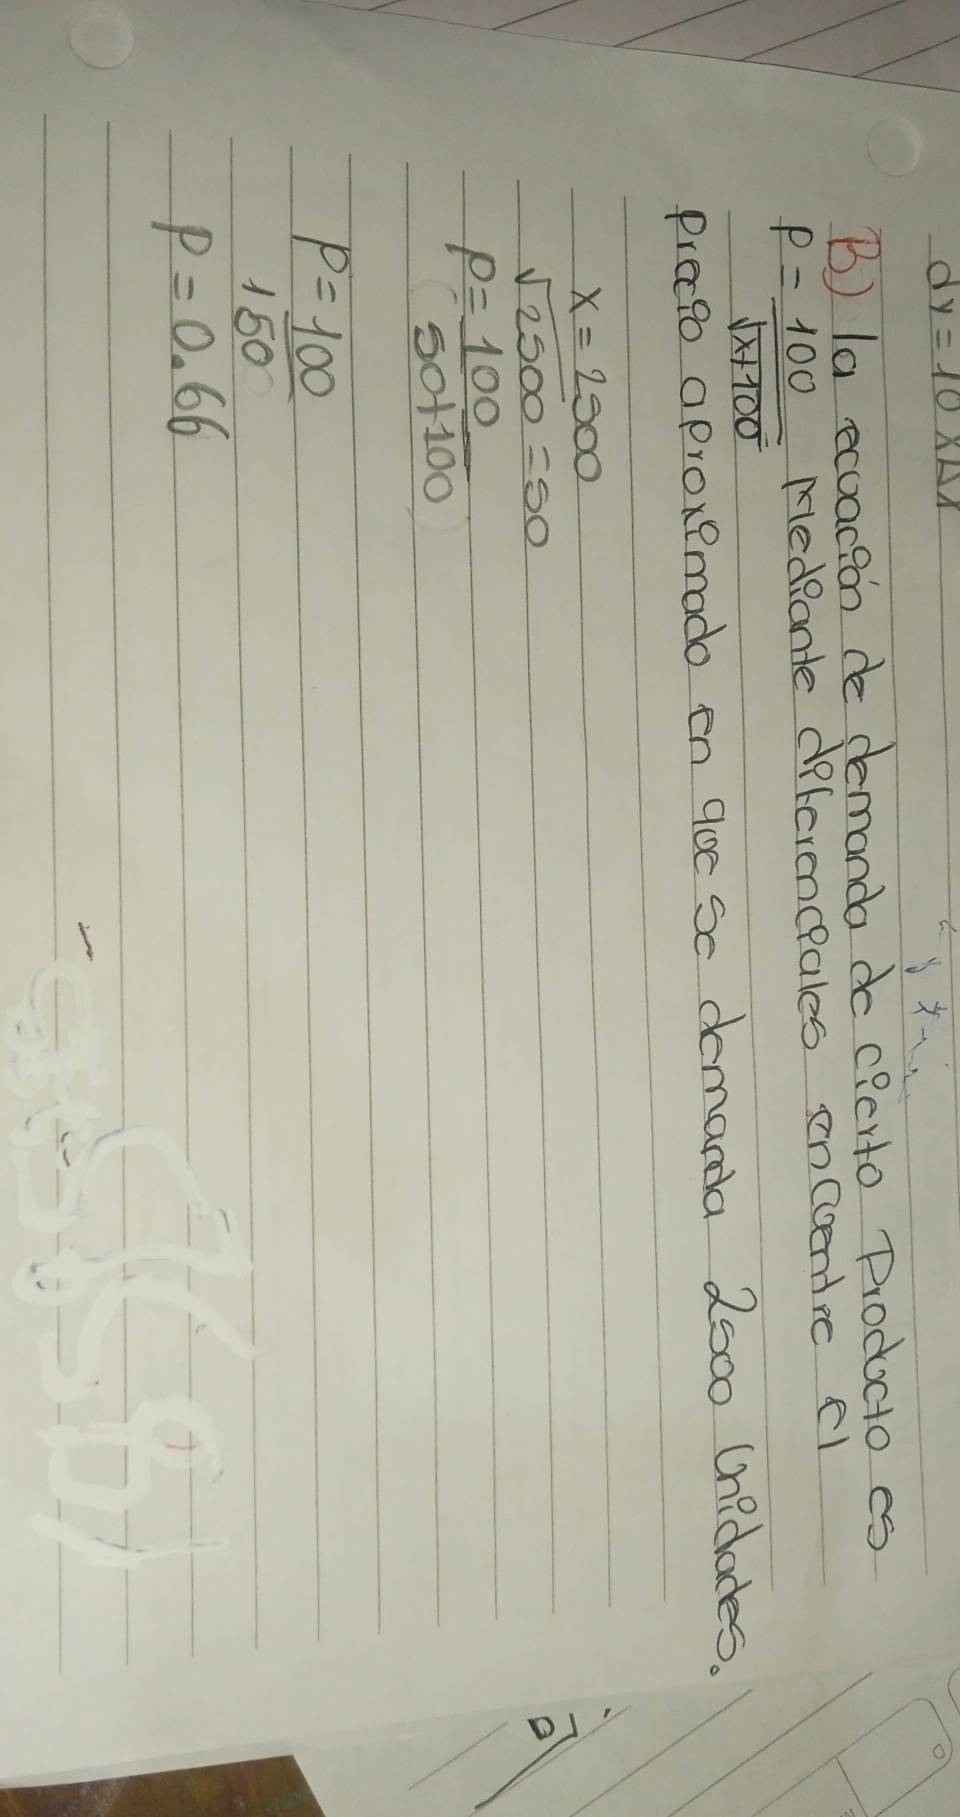 dy=10 x Δx
B) la ecuación de demanda de cierto Producto es
P= 100/√x+100 Mediante diferenciales encuentre el
Precio aproximado en que se demanda 2500 Unidades.
x=2500
√2500=50
P=100/50+100
P=100/150
P=0.66